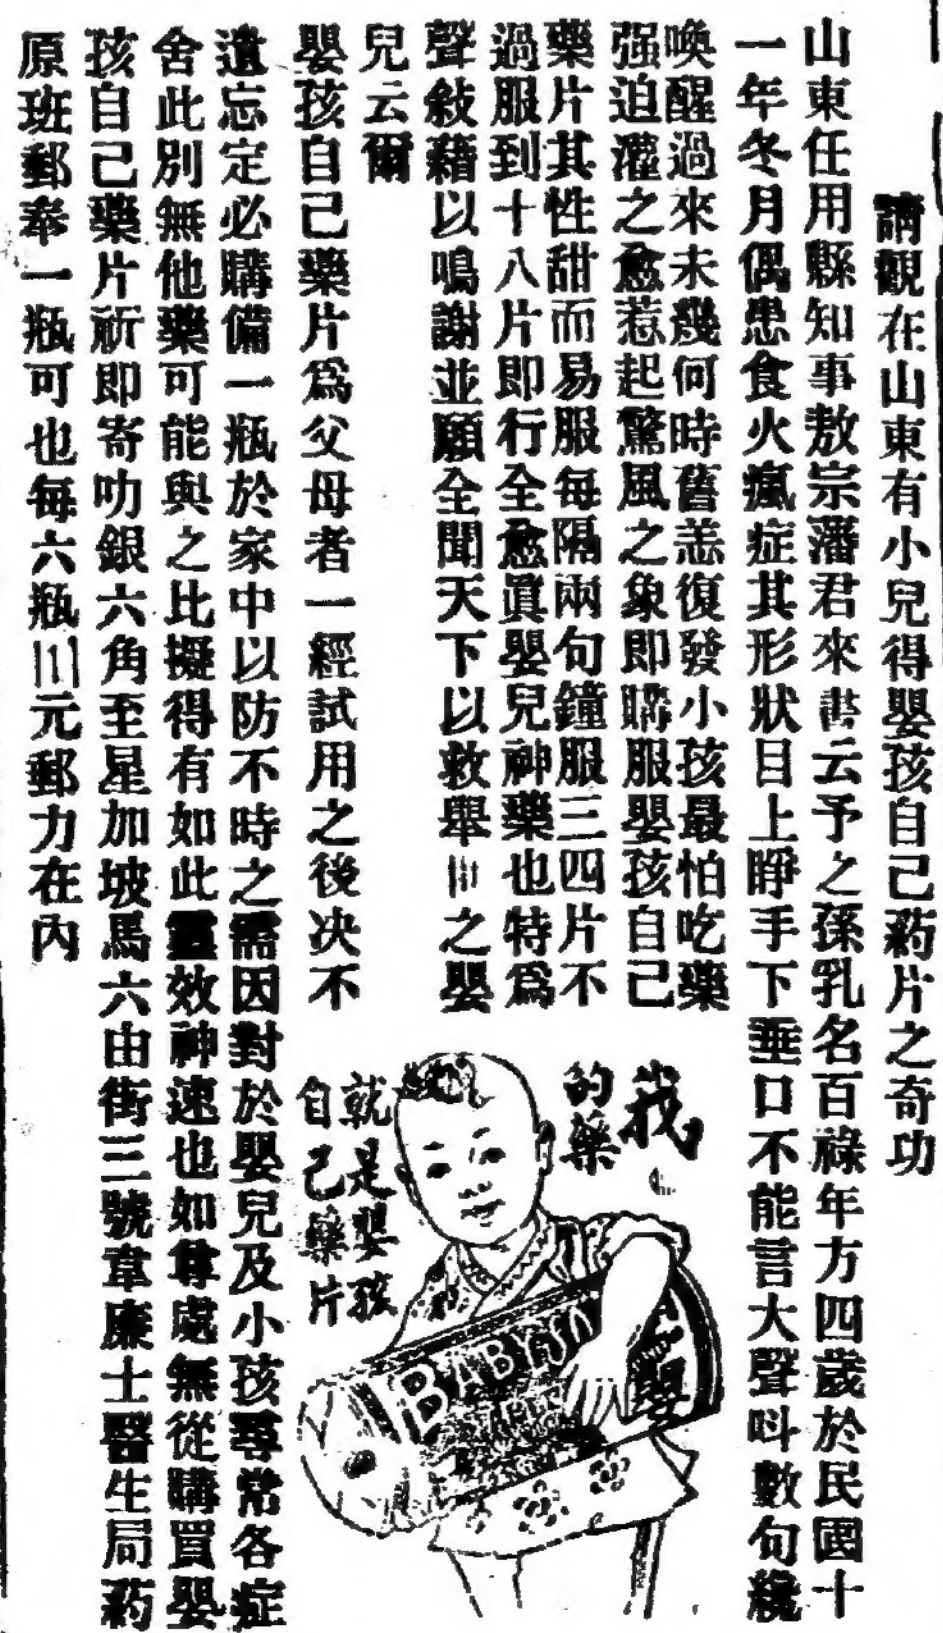 請觀在山東有小兒得嬰孩自己葯片之奇功
山東任用縣知事敖宗藩君來書云予之孫乳名百祿年方四歲於民國十
一年冬月偶患食火瘋症其形狀目上睜手下垂口不能言大聲呌數句纔
喚醒過來未幾何時舊恙復發小孩最怕吃藥
强迫灌之愈惹起驚風之象即購服嬰孩自己
藥片其性甜而易服每隔兩句鐘服三四片不
過服到十八片即行全愈眞嬰兒神藥也特爲
聲敍藉以鳴謝並願全聞天下以救舉之嬰
兒云爾
嬰孩自己藥片爲父母者一經試用之後决不
遺忘定必購備一瓶於家中以防不時之需因對於嬰兒及小孩尋常各症
舍此別無他藥可能與之比擬得有如此靈效神速也如尊處無從購買嬰
孩自己藥片祈即寄叻銀六角至星加坡馬六由街三號韋廉士醫生局葯
原班郵奉一瓶可也每六瓶三元郵力在內
我
的藥
就是嬰孩
自己藥片
BABY'S
嬰